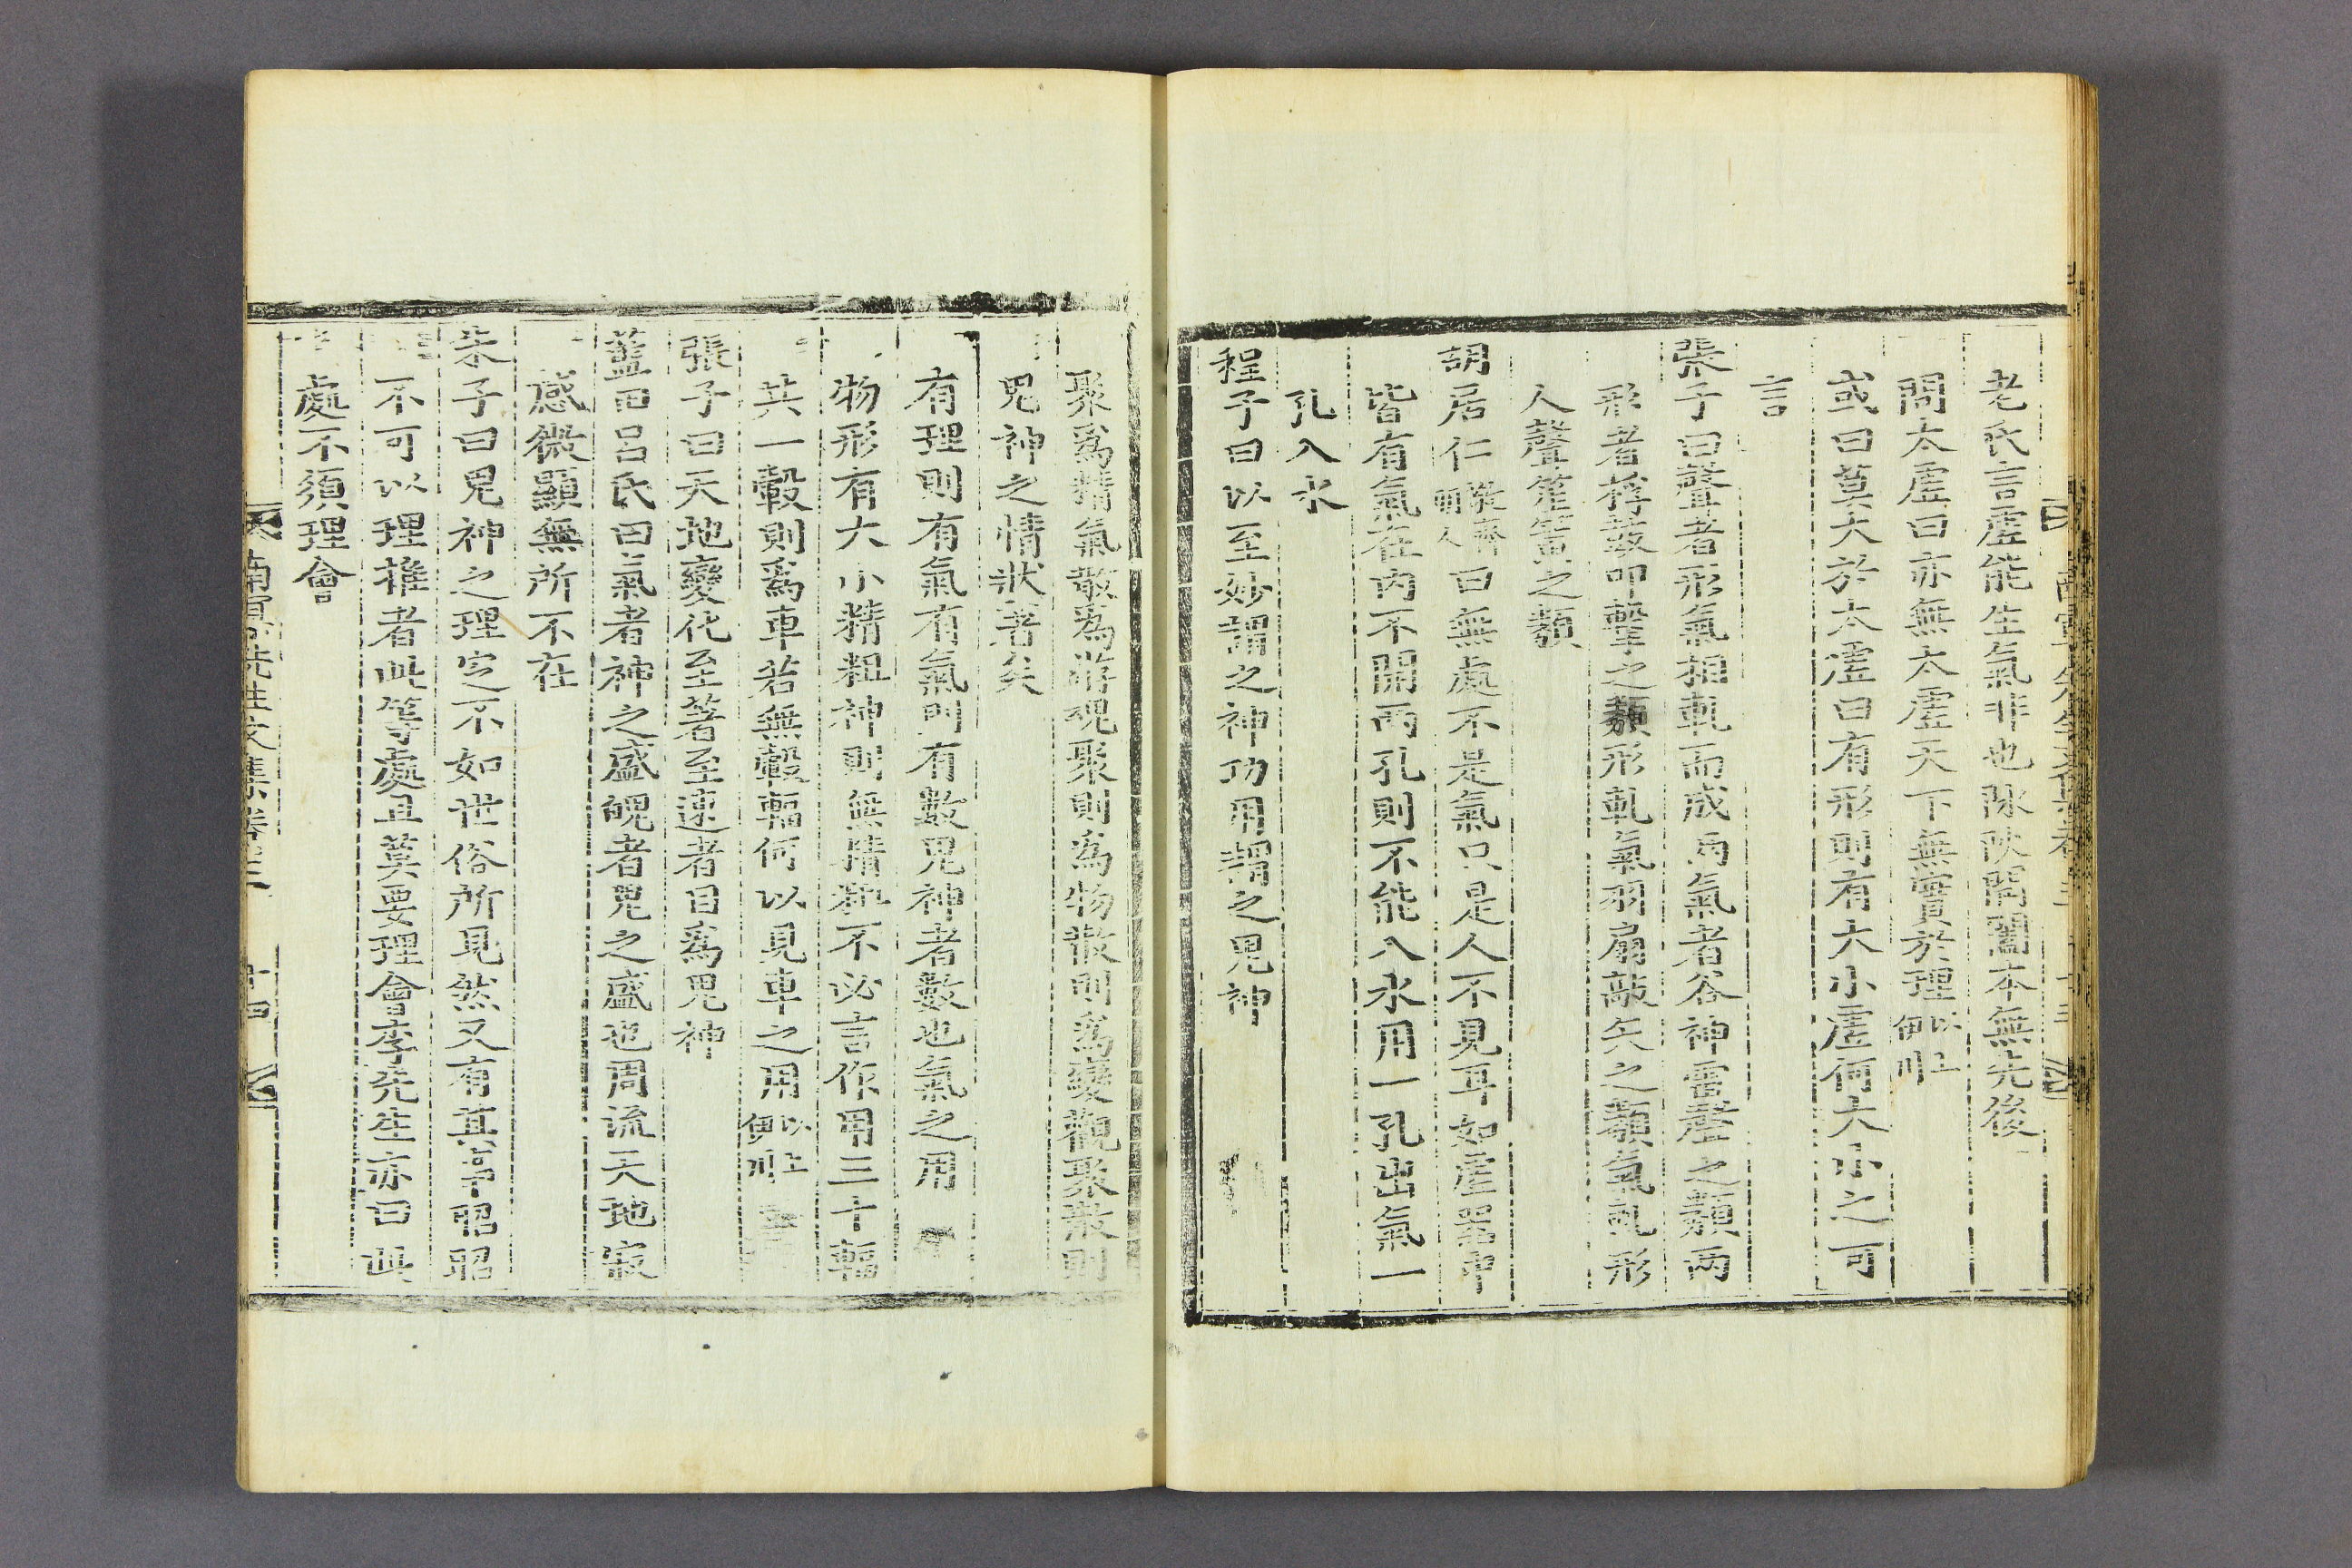 老氏言虛能生氣非也陰陜闔闢本無先後
問太虛曰亦無太虛天下無實於理以上伊川
或曰莫大於太虛曰有形則有大小虛何大小之可
言
張子曰聲者形氣相軋而成兩氣者谷神雷聲之類兩
形者桴鼓叩擊之類形軋氣羽扇敲矢之類氣軋形
人聲笙簧之類
胡居仁敬齋明人曰無處不是氣只是人不見耳如虛器中
皆有氣在內不開兩孔則不能入水用一孔出氣一
孔入水
程子曰以至妙謂之神功用謂之鬼神
聚爲精氣散爲游魂聚則爲物散則爲變觀聚散則
鬼神之情狀著矣
有理則有氣有氣則有數鬼神者數也氣之用
物形有大小精粗神則無精粗不必言作用三十輻
共一轂則爲車若無轂輻何以見車之用以上伊川
張子曰天地變化至著至速者目爲鬼神
藍田呂氏曰氣者神之盛魄者鬼之盛也周流天地寂
感微顯無所不在
朱子曰鬼神之理定不如世俗所見然又有其事昭昭
不可以理推者此等處且莫要理會李先生亦曰此
處不須理會
南冥先生文集卷三 十四